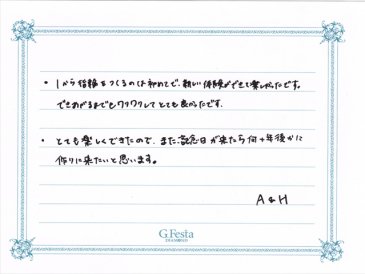 ・1から指輪をつくるのは初めてで、新しい体験ができて楽しかったです。
できあがるまでもワクワクしてとても良かったです。
・とても楽しくできたので、また記念日が来たら何十年後かに
作りに来たいと思います。
A & H
G.Festa
DIAMOND